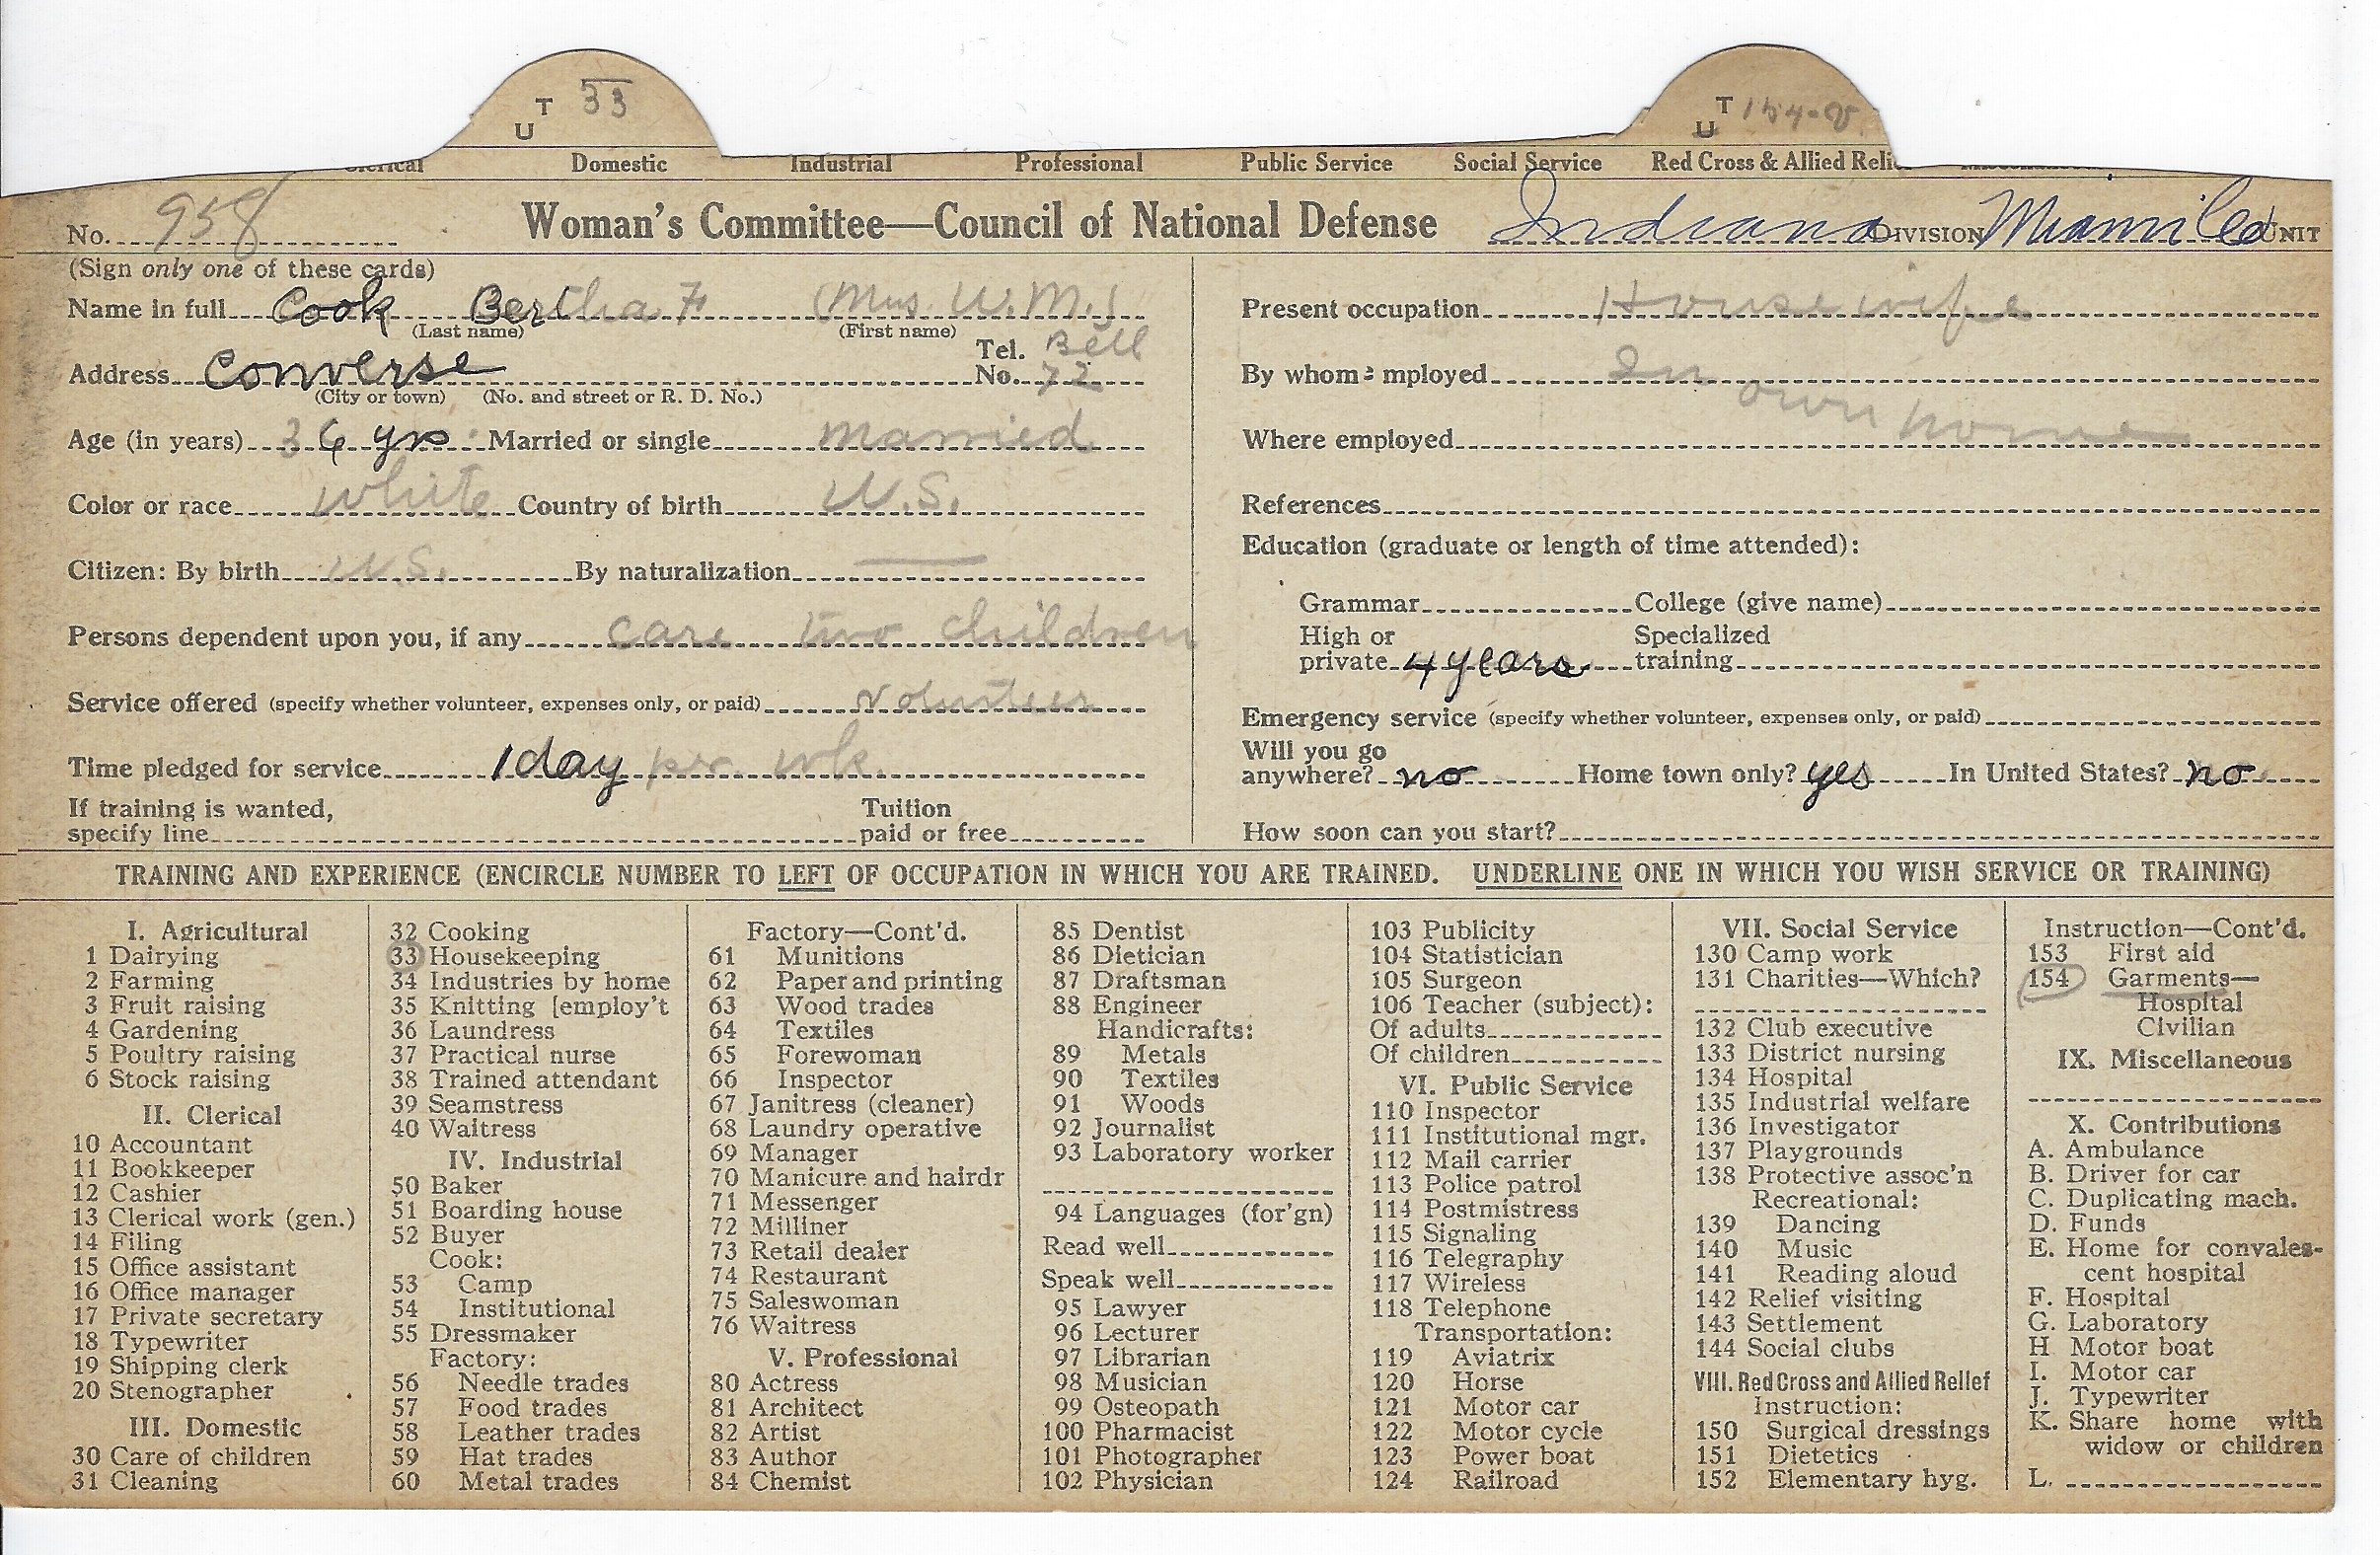 T
U 33
T
U 154-V
Domestic Industrial Professional Public Service Social Service Red Cross & Allied Relie
No. 958 Woman's Committee—Council of National Defense Indiana DIVISION Miami Co UNIT
(Sign only one of these cards)
Name in full Cook Bertha F (Mrs. W. M.)
(Last name) (First name)
Address Converse Tel. No. Bell 72
(City or town) (No. and street or R. D. No.)
Age (in years) 36 yrs. Married or single married
Color or race white Country of birth U.S.
Citizen: By birth U.S. By naturalization —
Persons dependent upon you, if any care two children
Service offered (specify whether volunteer, expenses only, or paid) Volunteer
Time pledged for service 1 day per wk.
If training is wanted, specify line Tuition paid or free
Present occupation Housewife
By whom employed In own home
Where employed
References
Education (graduate or length of time attended):
Grammar College (give name)
High or private 4 years Specialized training
Emergency service (specify whether volunteer, expenses only, or paid)
Will you go anywhere? no Home town only? yes In United States? no
How soon can you start?
TRAINING AND EXPERIENCE (ENCIRCLE NUMBER TO LEFT OF OCCUPATION IN WHICH YOU ARE TRAINED. UNDERLINE ONE IN WHICH YOU WISH SERVICE OR TRAINING)
I. Agricultural
1 Dairying
2 Farming
3 Fruit raising
4 Gardening
5 Poultry raising
6 Stock raising
II. Clerical
10 Accountant
11 Bookkeeper
12 Cashier
13 Clerical work (gen.)
14 Filing
15 Office assistant
16 Office manager
17 Private secretary
18 Typewriter
19 Shipping clerk
20 Stenographer
III. Domestic
30 Care of children
31 Cleaning
32 Cooking
33 Housekeeping
34 Industries by home
35 Knitting [employ't
36 Laundress
37 Practical nurse
38 Trained attendant
39 Seamstress
40 Waitress
IV. Industrial
50 Baker
51 Boarding house
52 Buyer
Cook:
53 Camp
54 Institutional
55 Dressmaker
Factory:
56 Needle trades
57 Food trades
58 Leather trades
59 Hat trades
60 Metal trades
Factory—Cont'd.
61 Munitions
62 Paper and printing
63 Wood trades
64 Textiles
65 Forewoman
66 Inspector
67 Janitress (cleaner)
68 Laundry operative
69 Manager
70 Manicure and hairdr
71 Messenger
72 Milliner
73 Retail dealer
74 Restaurant
75 Saleswoman
76 Waitress
V. Professional
80 Actress
81 Architect
82 Artist
83 Author
84 Chemist
85 Dentist
86 Dietician
87 Draftsman
88 Engineer
Handicrafts:
89 Metals
90 Textiles
91 Woods
92 Journalist
93 Laboratory worker
94 Languages (for'gn)
Read well
Speak well
95 Lawyer
96 Lecturer
97 Librarian
98 Musician
99 Osteopath
100 Pharmacist
101 Photographer
102 Physician
103 Publicity
104 Statistician
105 Surgeon
106 Teacher (subject):
Of adults
Of children
VI. Public Service
110 Inspector
111 Institutional mgr.
112 Mail carrier
113 Police patrol
114 Postmistress
115 Signaling
116 Telegraphy
117 Wireless
118 Telephone
Transportation:
119 Aviatrix
120 Horse
121 Motor car
122 Motor cycle
123 Power boat
124 Railroad
VII. Social Service
130 Camp work
131 Charities—Which?
132 Club executive
133 District nursing
134 Hospital
135 Industrial welfare
136 Investigator
137 Playgrounds
138 Protective assoc'n
Recreational:
139 Dancing
140 Music
141 Reading aloud
142 Relief visiting
143 Settlement
144 Social clubs
VIII. Red Cross and Allied Relief
Instruction:
150 Surgical dressings
151 Dietetics
152 Elementary hyg.
Instruction—Cont'd.
153 First aid
154 Garments—
Hospital
Civilian
IX. Miscellaneous
X. Contributions
A. Ambulance
B. Driver for car
C. Duplicating mach.
D. Funds
E. Home for convales-
cent hospital
F. Hospital
G. Laboratory
H Motor boat
I. Motor car
J. Typewriter
K. Share home with
widow or children
L.